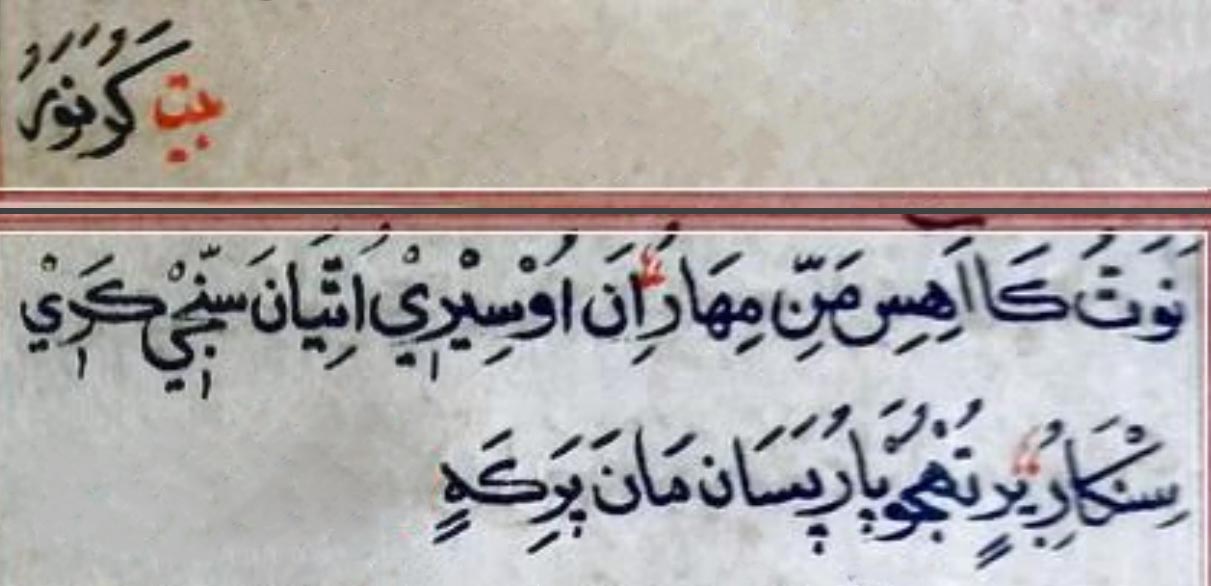 بيت كَرُ نَوَرُ
نَوَتُ كَا اَهِسِ مَنِّ مِهَارَاِنَ اُوْسِيْرِيْ اُتِّيَانَ سَنّجِيْ كَرِيْ
سِنْكَارِ بَرٍ تُهْجُوْ پَارُ پَسَان مَانَ پَرِكَهٍ